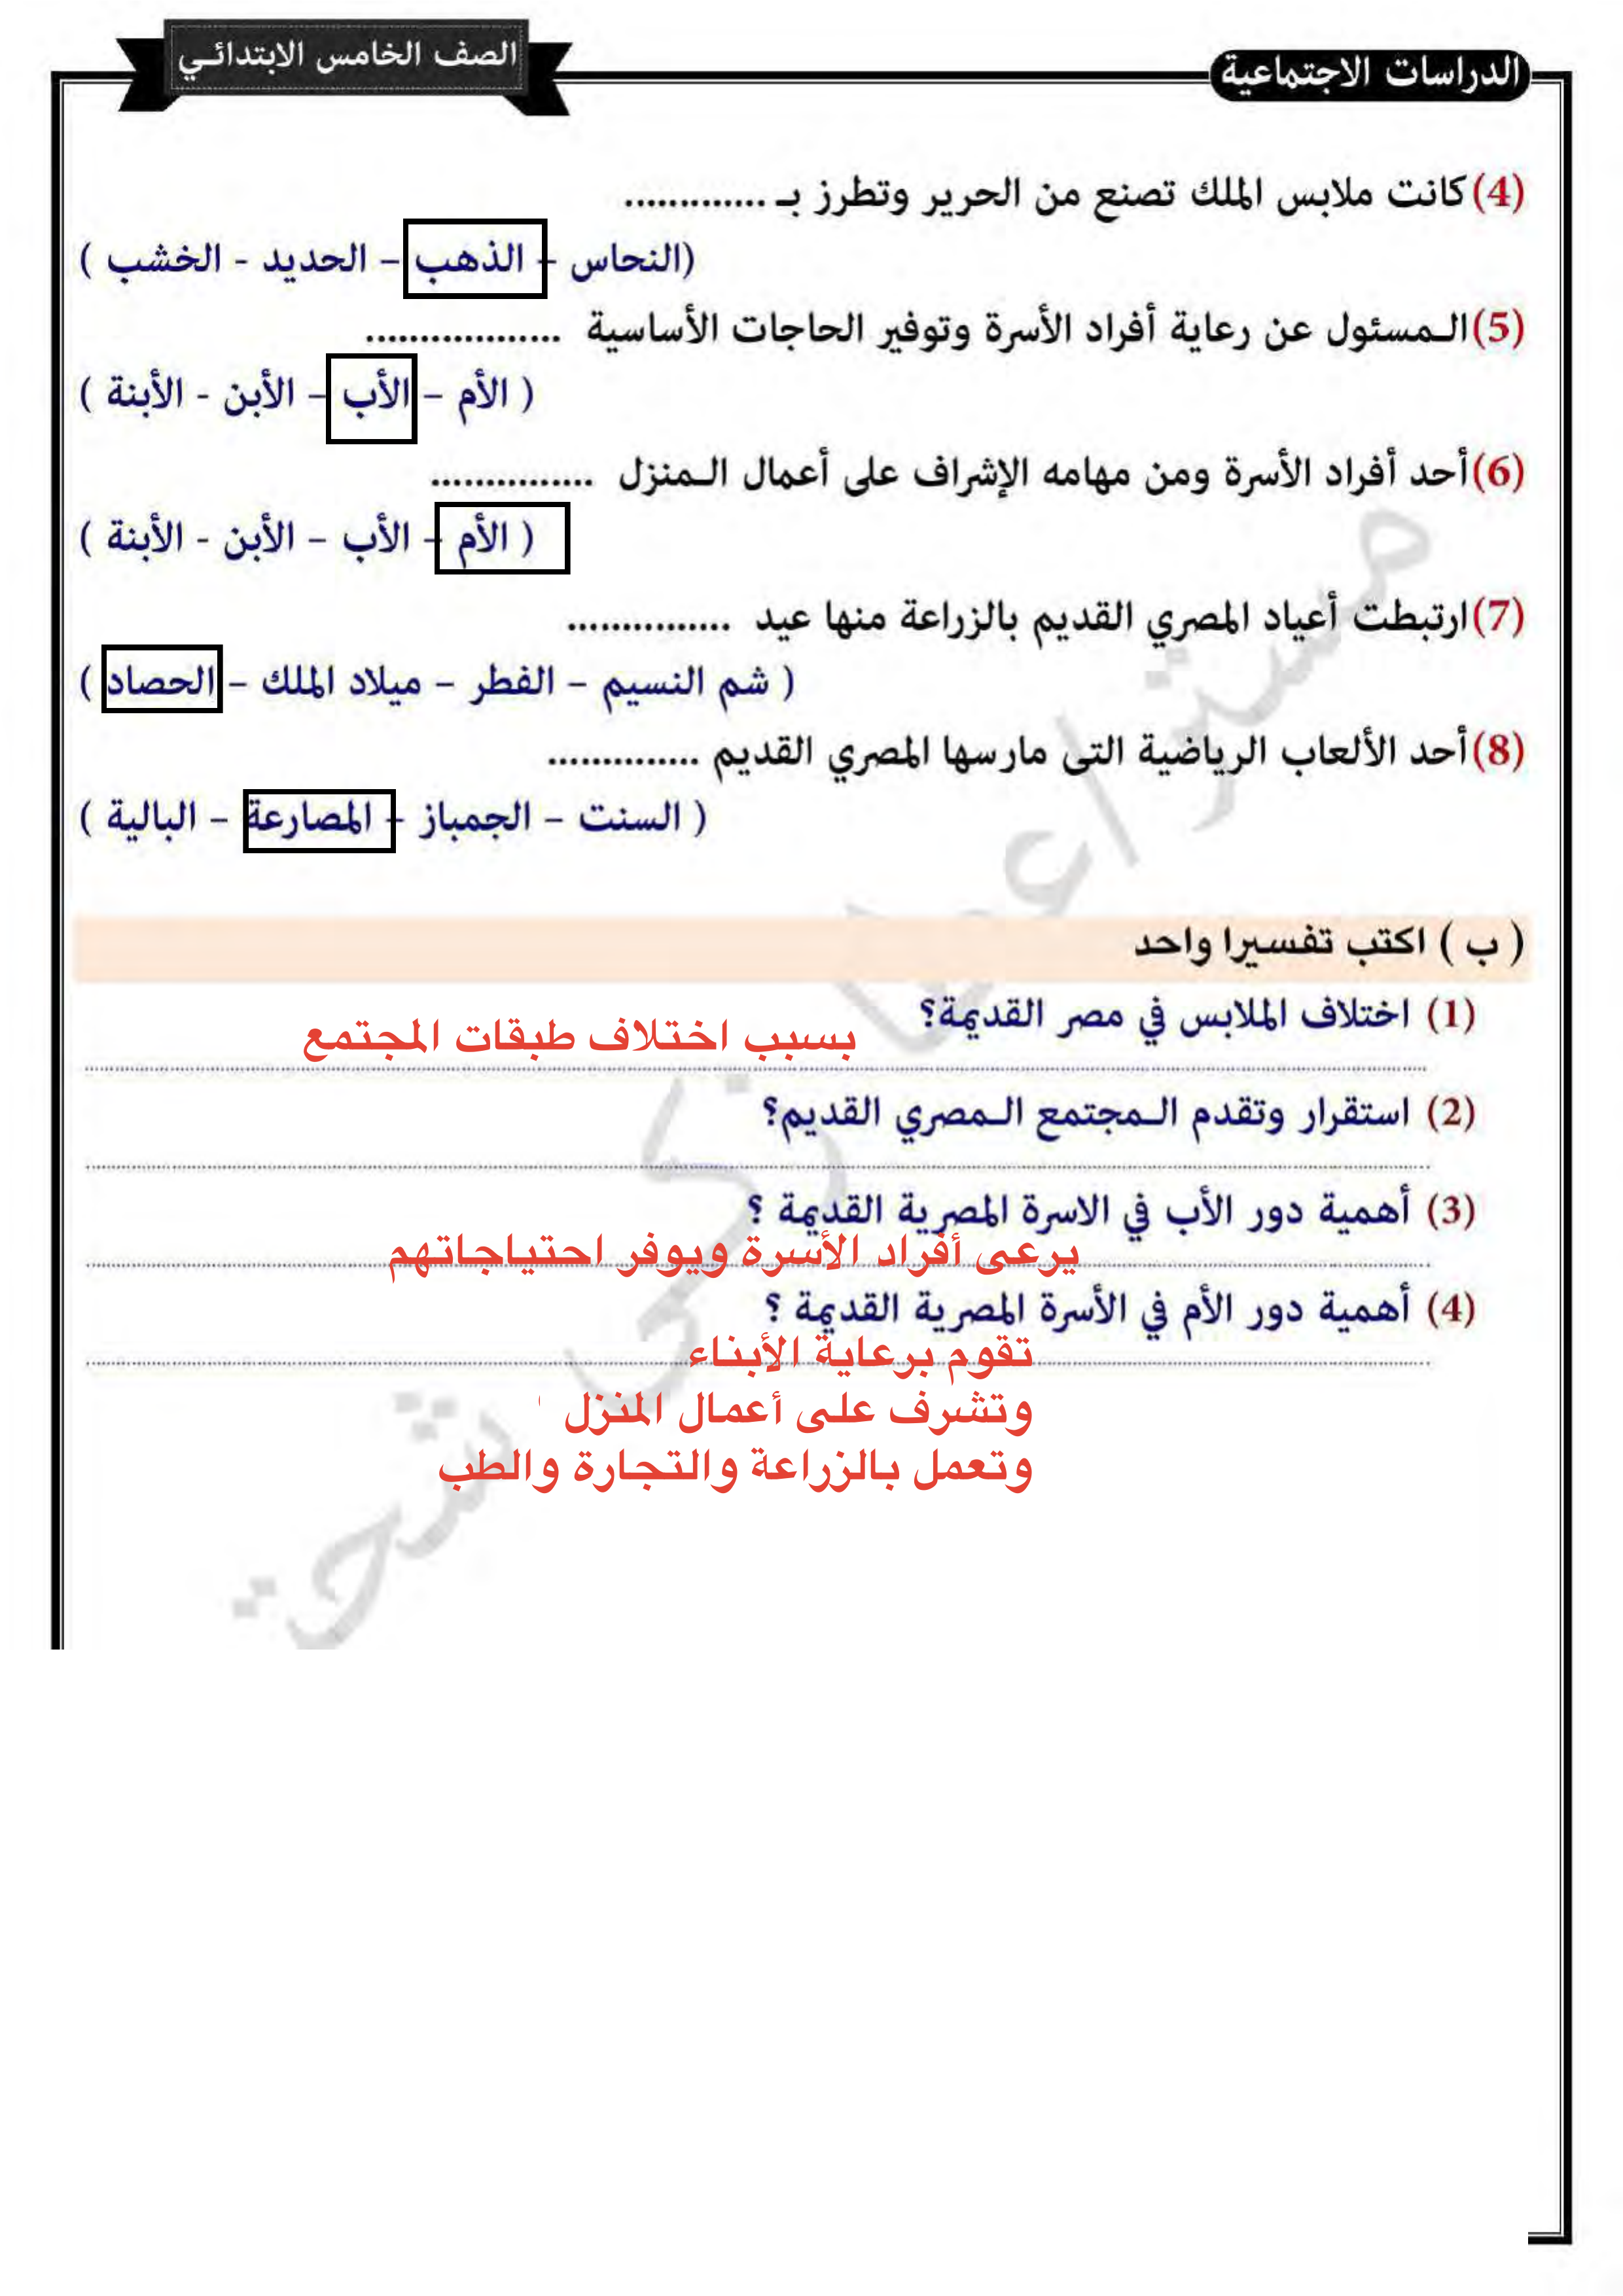 الدراسات الاجتماعية
الصف الخامس الابتدائي
(4) كانت ملابس الملك تصنع من الحرير وتطرز بـ .............
(النحاس – الذهب – الحديد - الخشب )
(5) الـمسئول عن رعاية أفراد الأسرة وتوفير الحاجات الأساسية ..................
( الأم – الأب – الأبن - الأبنة )
(6) أحد أفراد الأسرة ومن مهامه الإشراف على أعمال الـمنزل ...............
( الأم – الأب – الأبن - الأبنة )
(7) ارتبطت أعياد المصري القديم بالزراعة منها عيد ...............
( شم النسيم – الفطر – ميلاد الملك – الحصاد )
(8) أحد الألعاب الرياضية التى مارسها المصري القديم ..............
( السنت – الجمباز – المصارعة – البالية )
( ب ) اكتب تفسيرا واحد
(1) اختلاف الملابس في مصر القديمة؟
بسبب اختلاف طبقات المجتمع
(2) استقرار وتقدم الـمجتمع الـمصري القديم؟
(3) أهمية دور الأب في الاسرة المصرية القديمة ؟
يرعى أفراد الأسرة ويوفر احتياجاتهم
(4) أهمية دور الأم في الأسرة المصرية القديمة ؟
تقوم برعاية الأبناء
وتشرف على أعمال المنزل
وتعمل بالزراعة والتجارة والطب